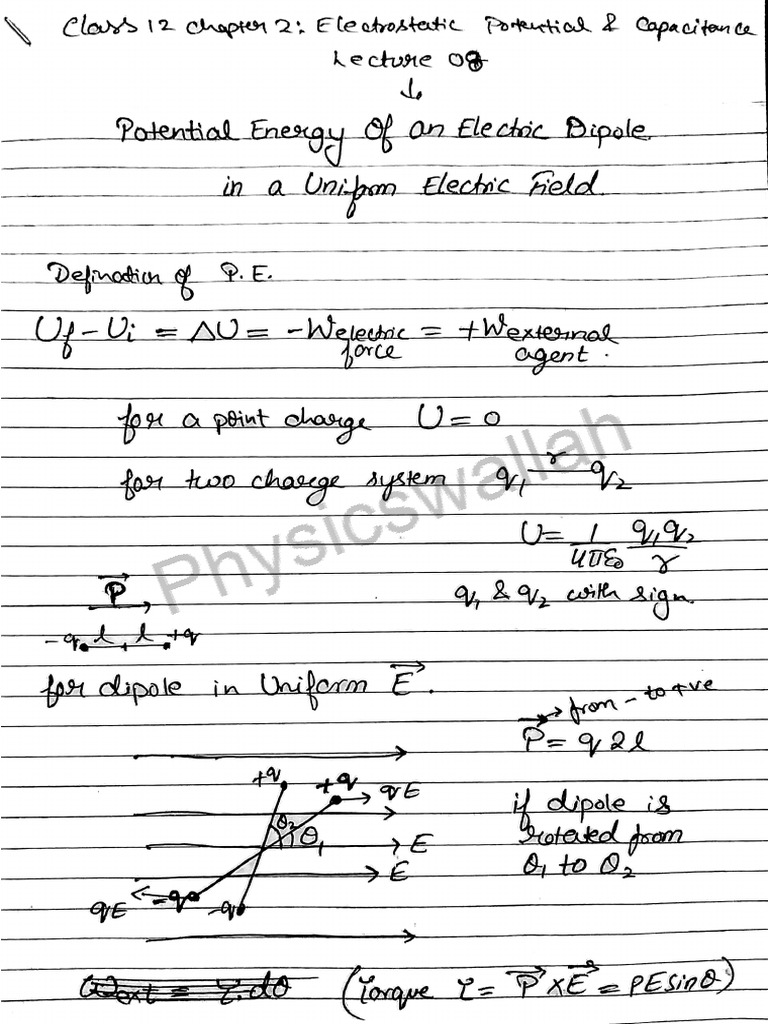 Class 12 chapter 2: Electrostatic Potential & Capacitance
Lecture 08
↓
Potential Energy Of an Electric Dipole
in a Uniform Electric Field.
Defination of P.E.
Uf - Ui = ΔU = -Welectric force = +Wexternal agent.
for a point charge U = 0
for two charge system q1 r q2
U = 1/4πε0 q1q2/r
q1 & q2 with sign.
P→
-q l l +q
for dipole in Uniform E→.
→ from - to +ve
P→ = q 2l
+q +q qE
θ2 θ1 E
E
qE -q -q
if dipole is
rotated from
θ1 to θ2
Wext = τ.dθ (Torque τ = P→ × E→ = PE sinθ)
Physicswallah